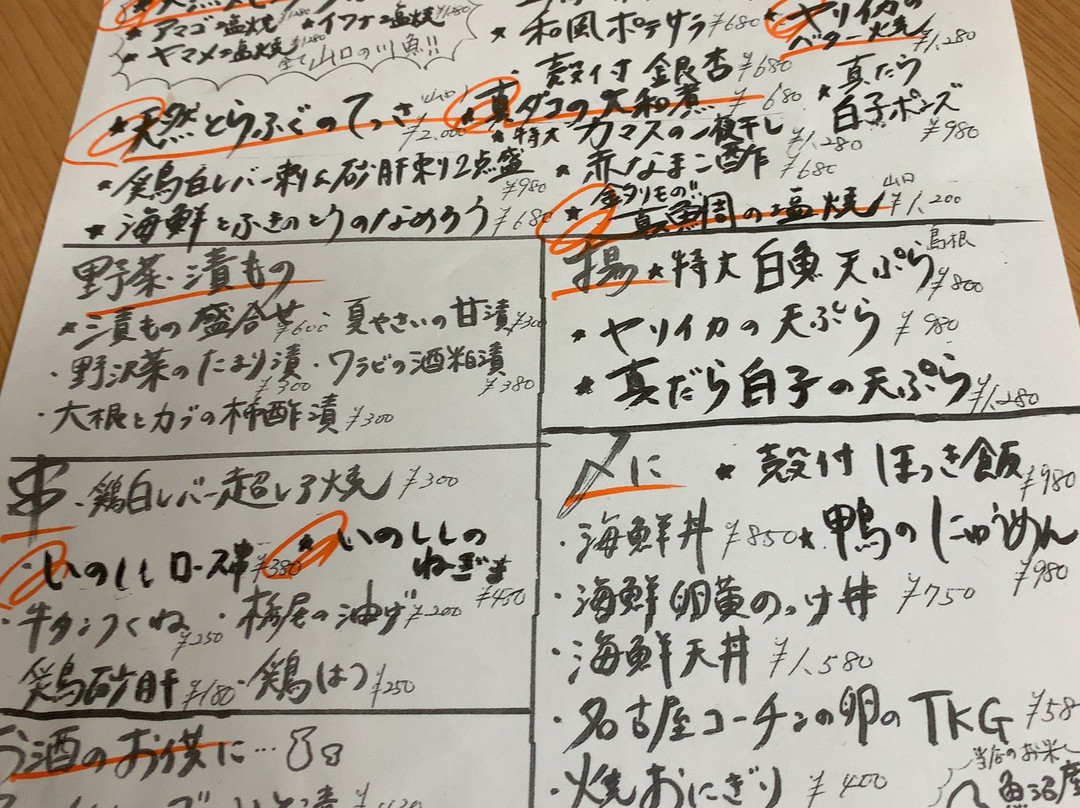 ★アマゴの塩焼 ¥1,280 ★イワナの塩焼 ¥1,280
★ヤマメの塩焼 ¥1,280 全て山口の川魚!!
★天然とらふぐのてっさ 山口 ¥2,000
★鶏白レバー刺し&砂肝刺り2点盛 ¥980
★海鮮とふきのとうのなめろう ¥680
★和風ポテサラ ¥680
殻付 銀杏 ¥680
★真ダコの大和煮 ¥680
★特大カマスの一夜干し ¥1,280
★赤なまこ酢 ¥680
★釣りもの!!真鯛の塩焼 山口 ¥1,200
★ヤリイカのバター焼 ¥1,280
★真だら白子ポンズ ¥980
野菜・漬もの
★漬もの盛合せ ¥600 ・夏やさいの甘漬 ¥300
・野沢菜のたまり漬 ¥300 ・ワラビの酒粕漬 ¥380
・大根とカブの柿酢漬 ¥300
揚 ★特大白魚天ぷら 島根 ¥800
★ヤリイカの天ぷら ¥980
★真だら白子の天ぷら ¥1,280
串 ・鶏白レバー超レア焼 ¥300
・いのししロース串 ¥380 ★いのししのねぎま ¥450
・牛タンつくね ¥250 ・栃尾の油げ ¥200
鶏砂肝 ¥180 ・鶏はつ ¥250
お酒のお供に…
〆に ★殻付ほっき飯 ¥980
・海鮮丼 ¥850 ★鴨のにゅうめん ¥980
・海鮮卵黄のっけ丼 ¥750
・海鮮天丼 ¥1,580
・名古屋コーチンの卵のTKG ¥58
・焼おにぎり ¥400
当店のお米し